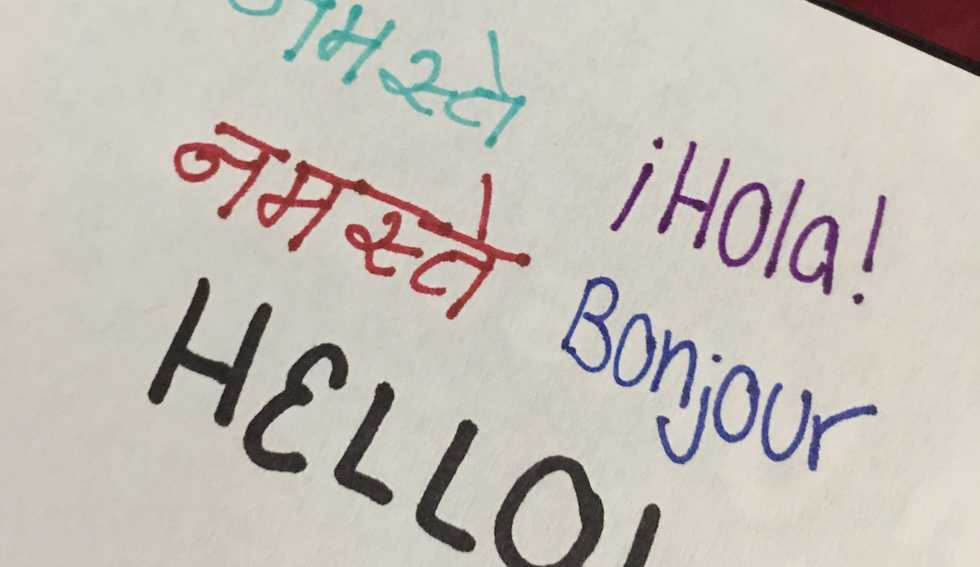 नमस्ते
नमस्ते
¡Hola!
Bonjour
HELLO!